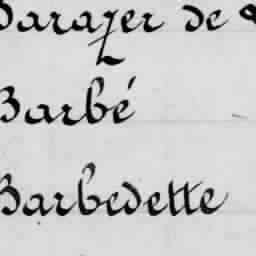 Barazer de
Barbé
Barbedette